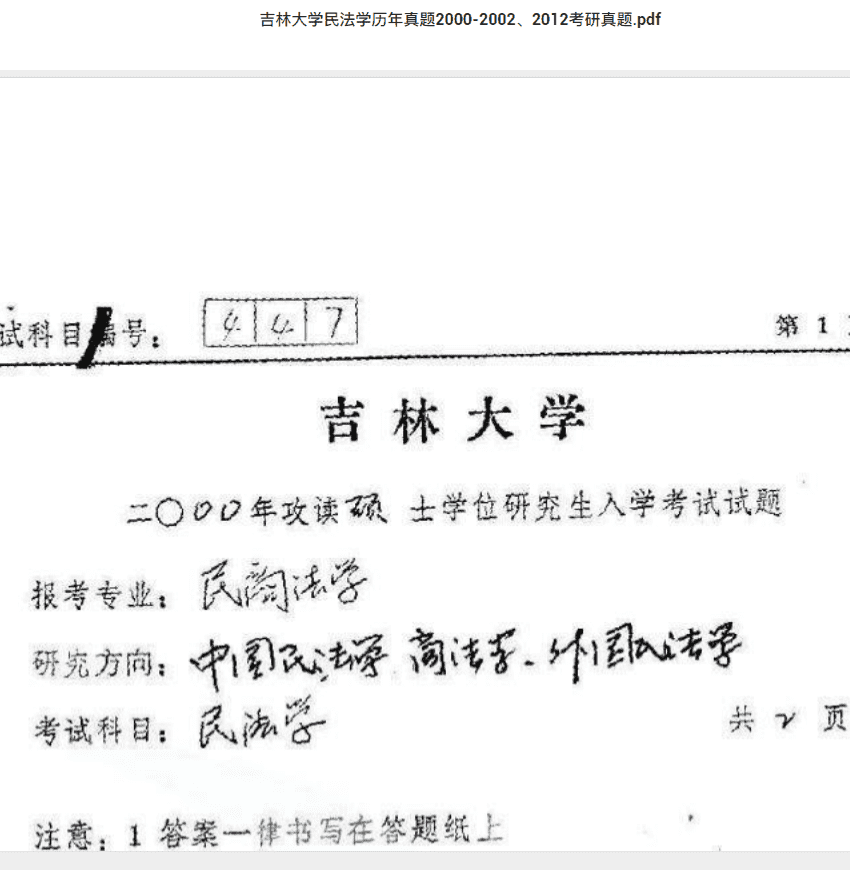 吉林大学民法学历年真题2000-2002、2012考研真题.pdf
试科目编号: 447 第 1
吉林大学
二〇〇〇年攻读硕 士学位研究生入学考试试题
报考专业: 民商法学
研究方向: 中国民法学 商法学、外国民法学
考试科目: 民法学 共 2 页
注意: 1 答案一律书写在答题纸上